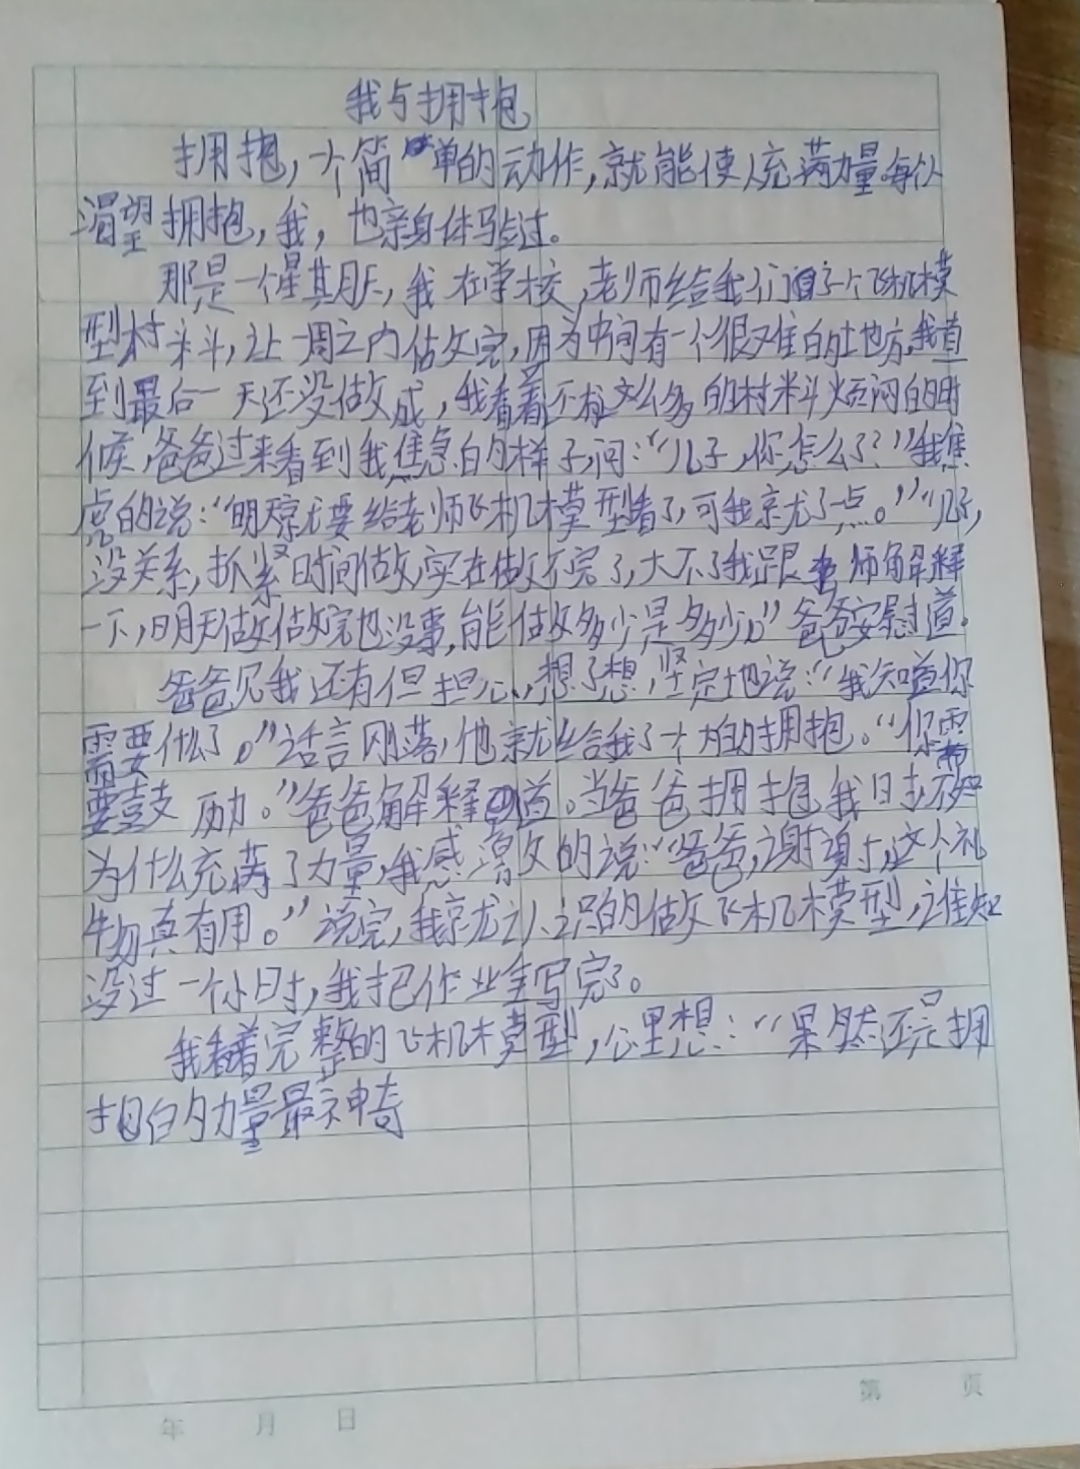 我与拥抱
拥抱，一个简单的动作，就能使人充满力量。每个人
渴望拥抱，我，也亲身体验过。
那是一个星期五，我在学校，老师给我们一个飞机模
型材料，让一周之内做完，因为中间有一个很难的地方，我直
到最后一天还没做成，我看着这么多的材料烦闷的时
候，爸爸过来看到我焦急的样子，问：“儿子，你怎么了？”我焦
虑的说：“明天就要给老师飞机模型看了，可我就了一点。”“儿子，
没关系，抓紧时间做，实在做不完了，大不了我跟老师解释
一下，明天做做完也没事，能做多少是多少。”爸爸安慰道。
爸爸见我还有但担心，想了想，坚定地说：“我知道你
需要什么了。”话言刚落，他就给我了一个大的拥抱。“你需
要鼓励。”爸爸解释道。当爸爸拥抱我时，不知
为什么充满了力量，我感激的说：“爸爸，谢谢，这个礼
物真有用。”说完，我就认识的做飞机模型，谁知
没过一个小时，我把作业全写完了。
我看着完整的飞机模型，心里想：“果然还是拥
抱的力量最神奇